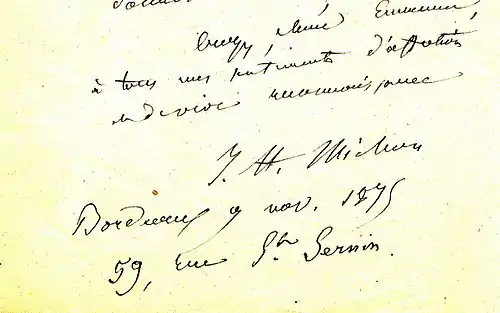 à tous mes sentiments d'affection
et de vive reconnaissance
J. H. Michon
Bordeaux 9 nov. 1875
59, rue St. Sernin.